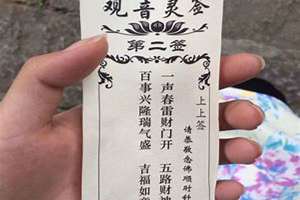 观音灵签
第二签
上上签
一声春雷财门开 五路财神
百事兴隆瑞气盛 吉福如意
请恭敬念佛顺时针